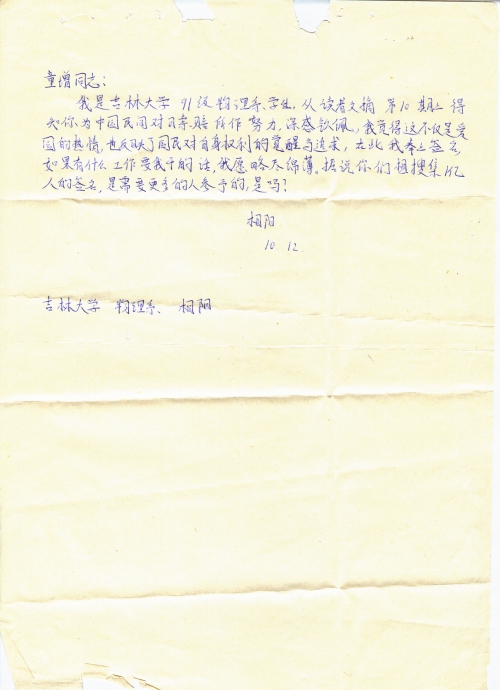 童增同志：
我是吉林大学 91级物理系学生，从读者文摘 第10期上 得
知你为中国民间对日索赔 所作 努力，深感钦佩。我觉得这不仅是爱
国的热情，也反映了国民对自身权利的觉醒与追求，在此我奉上签名，
如果有什么工作要我干的话，我愿略尽绵薄。据说你们想搜集1亿
人的签名，是需要更多的人参予的，是吗？
相阳
10.12.
吉林大学 物理系、 相阳